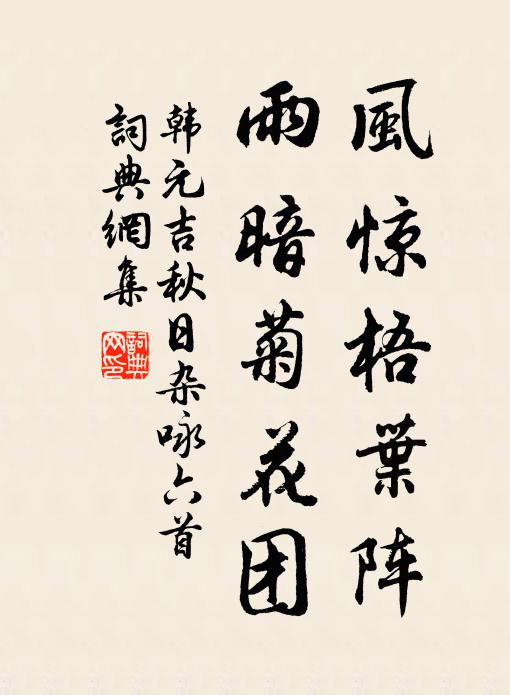 風惊梧葉阵
雨暗菊花团
韩元吉秋日杂咏六首
詞典網集
詞典网印